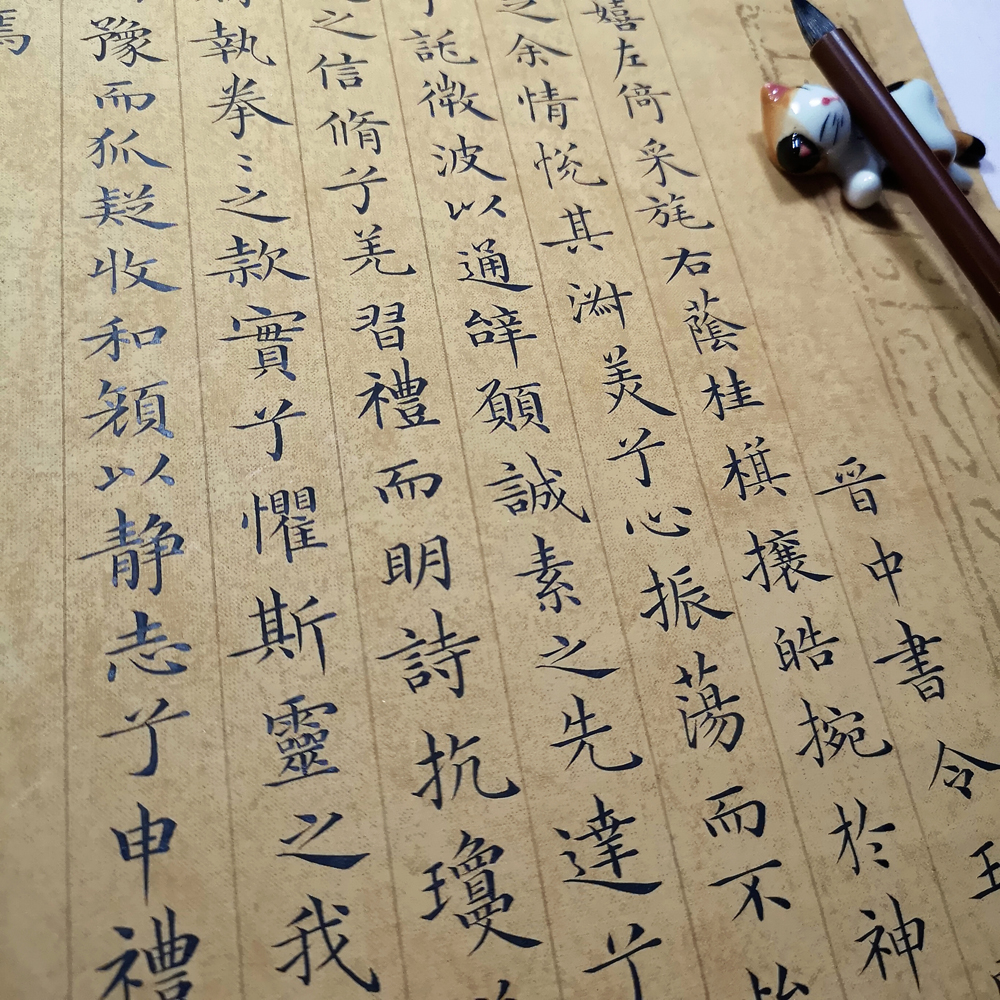 晋中書令王
嬉左倚采旄右蔭桂棋攘皓捥於神
之余情悅其淑美兮心振蕩而不
兮託微波以通辭願誠素之先達兮
之信脩兮羌習禮而明詩抗瓊
執拳〻之款實兮懼斯靈之我
豫而狐疑收和顏以静志兮申禮
焉